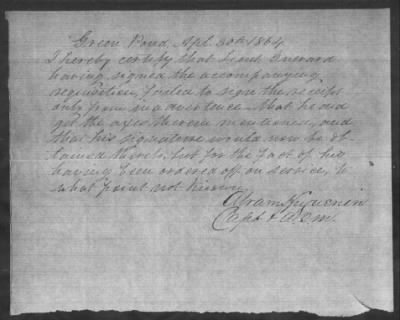 Green Pond, Apl. 30th 1864
I hereby certify that Lieut Everard
having signed the accompanying
requisition, failed to sign the receipt
only from inadvertence. That he did
get the axes therein mentioned, and
that his signature would now be ob-
tained thereto, but for the fact of his
having been ordered off on service, to
what point not known.
Abram Huguenin
Capt & A.Q.M.